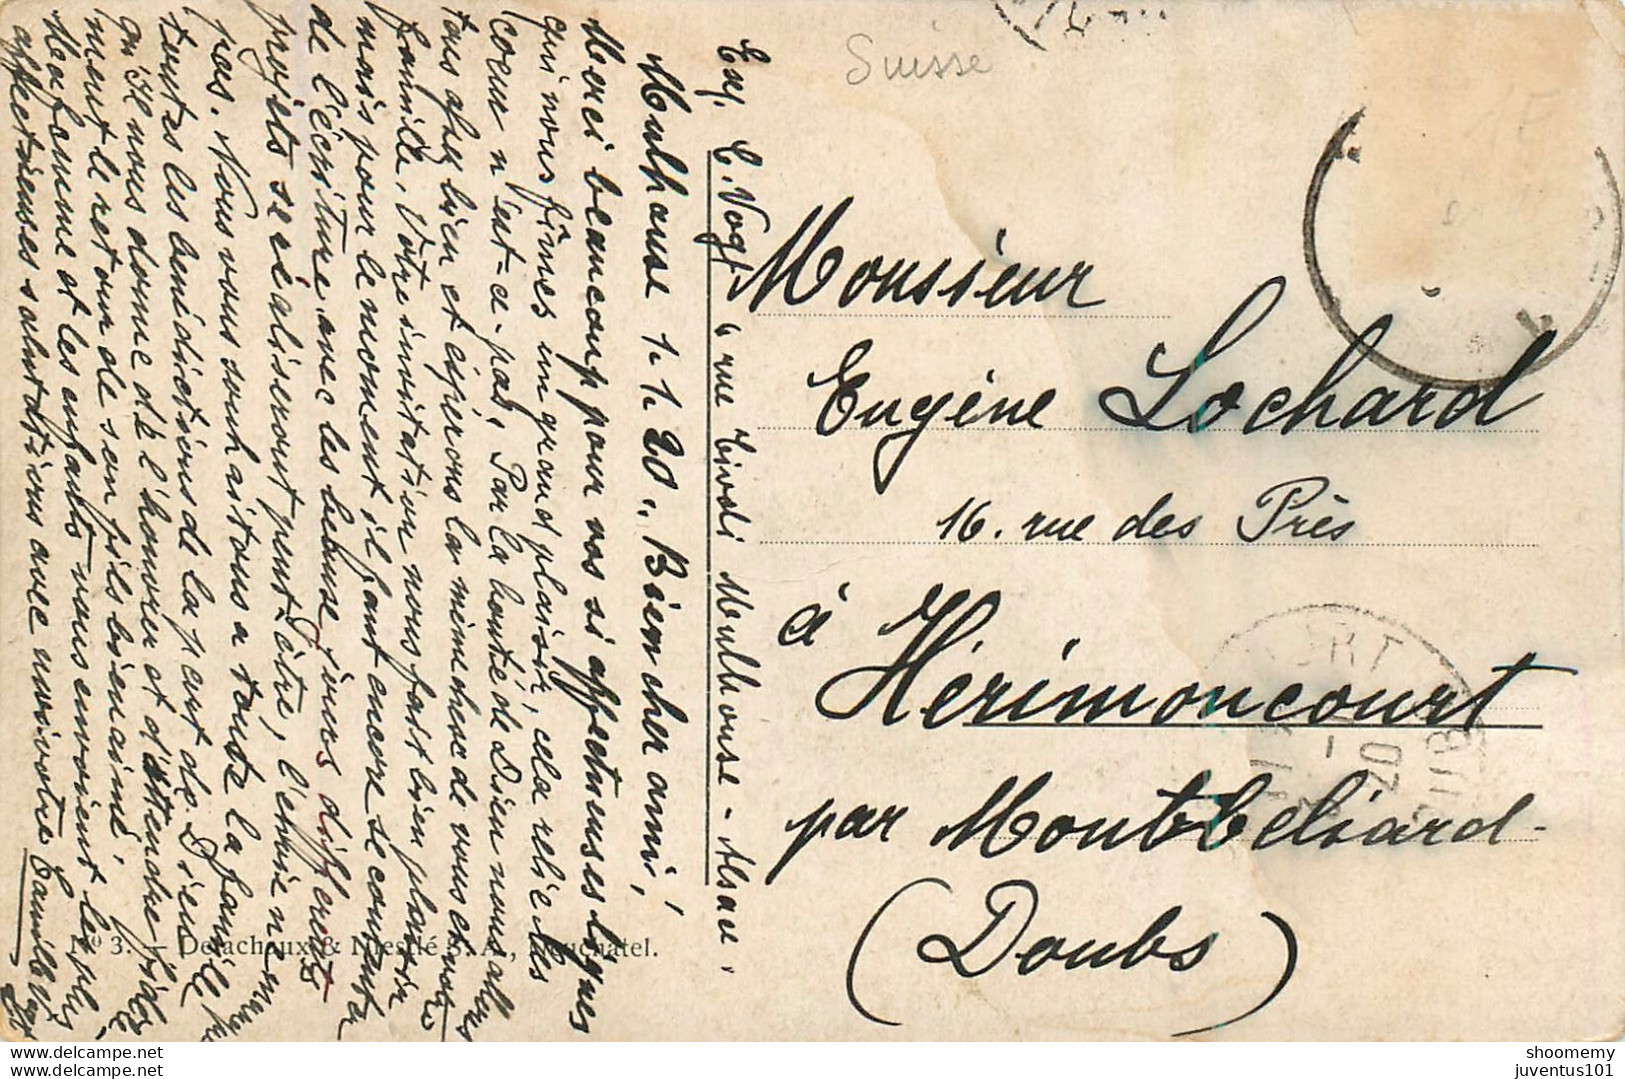 Suisse
Exp. C. Vogt 6 rue Tivoli Mulhouse - Alsace.
Mulhouse 1.1.20. Bien cher ami,
Merci beaucoup pour vos si affectueuses lignes
qui nous fîmes un grand plaisir, cela relie les
coeur n'est-ce-pas. Par la bonté de Dieu nous allons
tous assez bien et espérons la même chose de vous et
famille. Votre invitation nous fait bien plaisir
mais pour le moment il faut encore se contenter
de l'écriture avec les
projets se réaliseront peut-être, l'
pas. Nous vous souhaitons a toute la famille
toutes les bénédictions de la part de Dieu
qu'Il nous donne de l'honorer et d'attendre
ment le retour de son fils bien aimé.
Ma femme et les enfants vous envoient les plus
affectueuses salutations avec votre Camille Vogt
Monsieur
Eugène Lochard
16. rue des Près
à Hérimoncourt
par Montbéliard-
(Doubs)
No 3. – Delachaux & Niestlé S. A., Neuchâtel.
20
delcampe.net
delcampe.net
shoomemy
juventus101